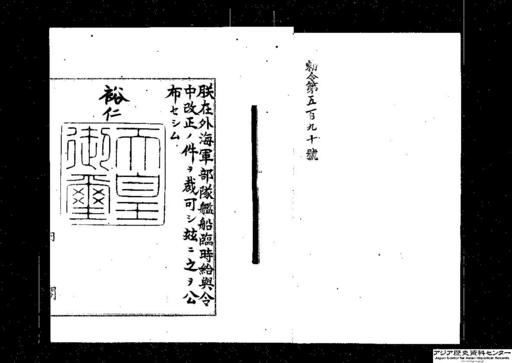 勅令第五百九十號
朕在外海軍部隊艦船臨時給與令
中改正ノ件ヲ裁可シ茲ニ之ヲ公
布セシム
裕仁
天皇
御璽
内
閣
アジア歴史資料センター
Japan Center for Asian Historical Records